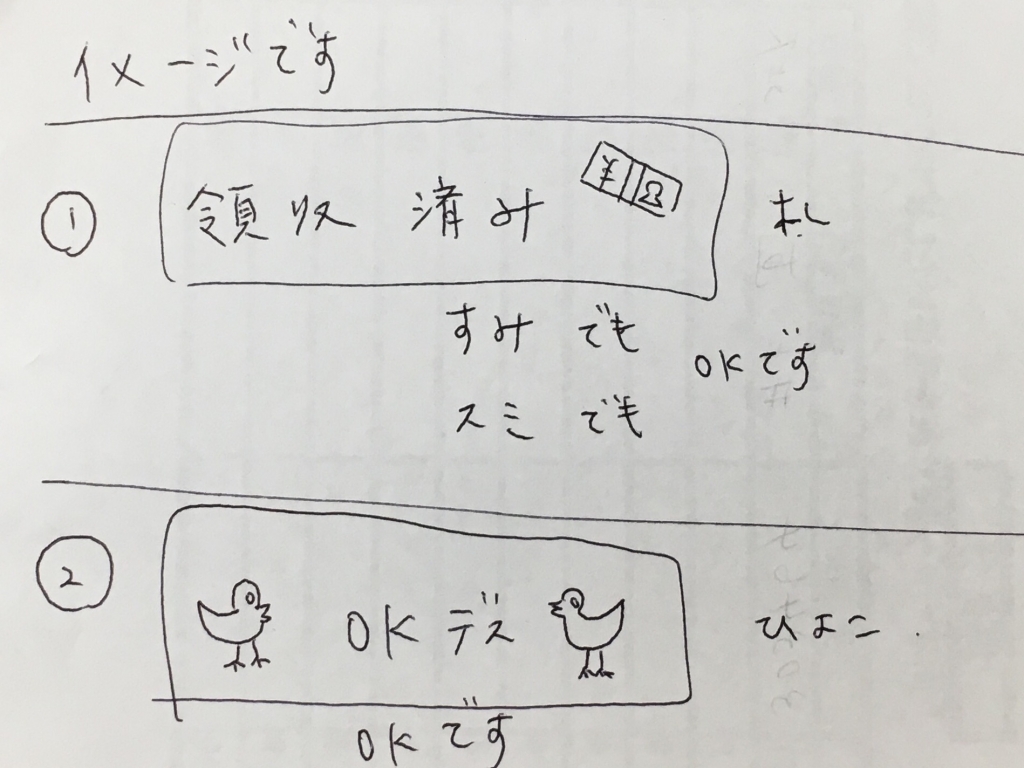 イメージです
① 領収 済み ¥ 札
すみ でも
OKです
スミ でも
② OK デス ひよこ.
OK です